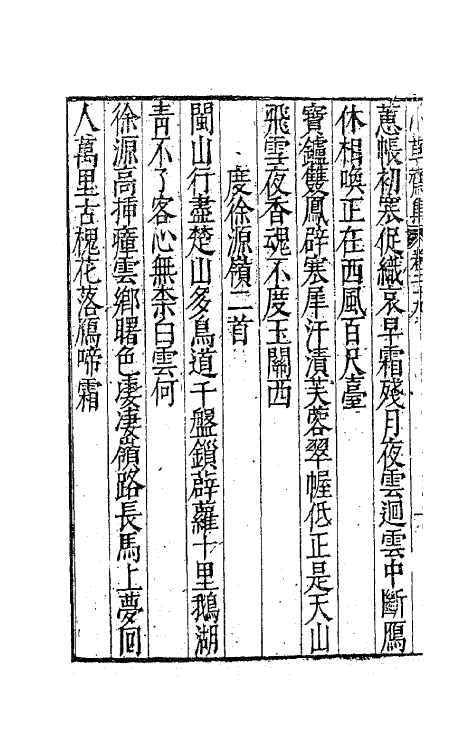 小草齋集 卷二十九
蕙帳初寒促織哀旱霜殘月夜雲迴雲中斷鴈
休相喚正在西風百尺臺
寶鑪雙鳳辟寒犀汗漬芙蓉翠幄低正是天山
飛雪夜香魂不度玉關西
度徐源嶺二首
閩山行盡楚山多鳥道千盤鎖薜蘿十里鵝湖
青不了客心無柰白雲何
徐源高揷瘴雲鄉曙色凄凄嶺路長馬上夢囘
人萬里古槐花落鴈啼霜